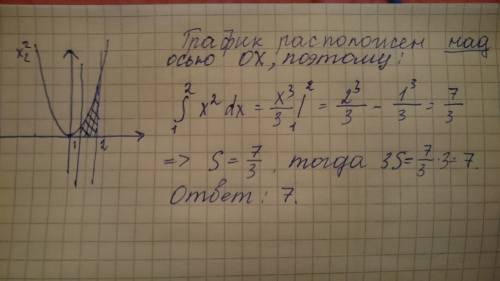 График расположен над
осью OX, поэтому:
x²
∫₁² x² dx = x³/3 |₁² = 2³/3 - 1³/3 = 7/3
1 2
=> S = 7/3, тогда 3S = 7/3 · 3 = 7.
Ответ: 7.